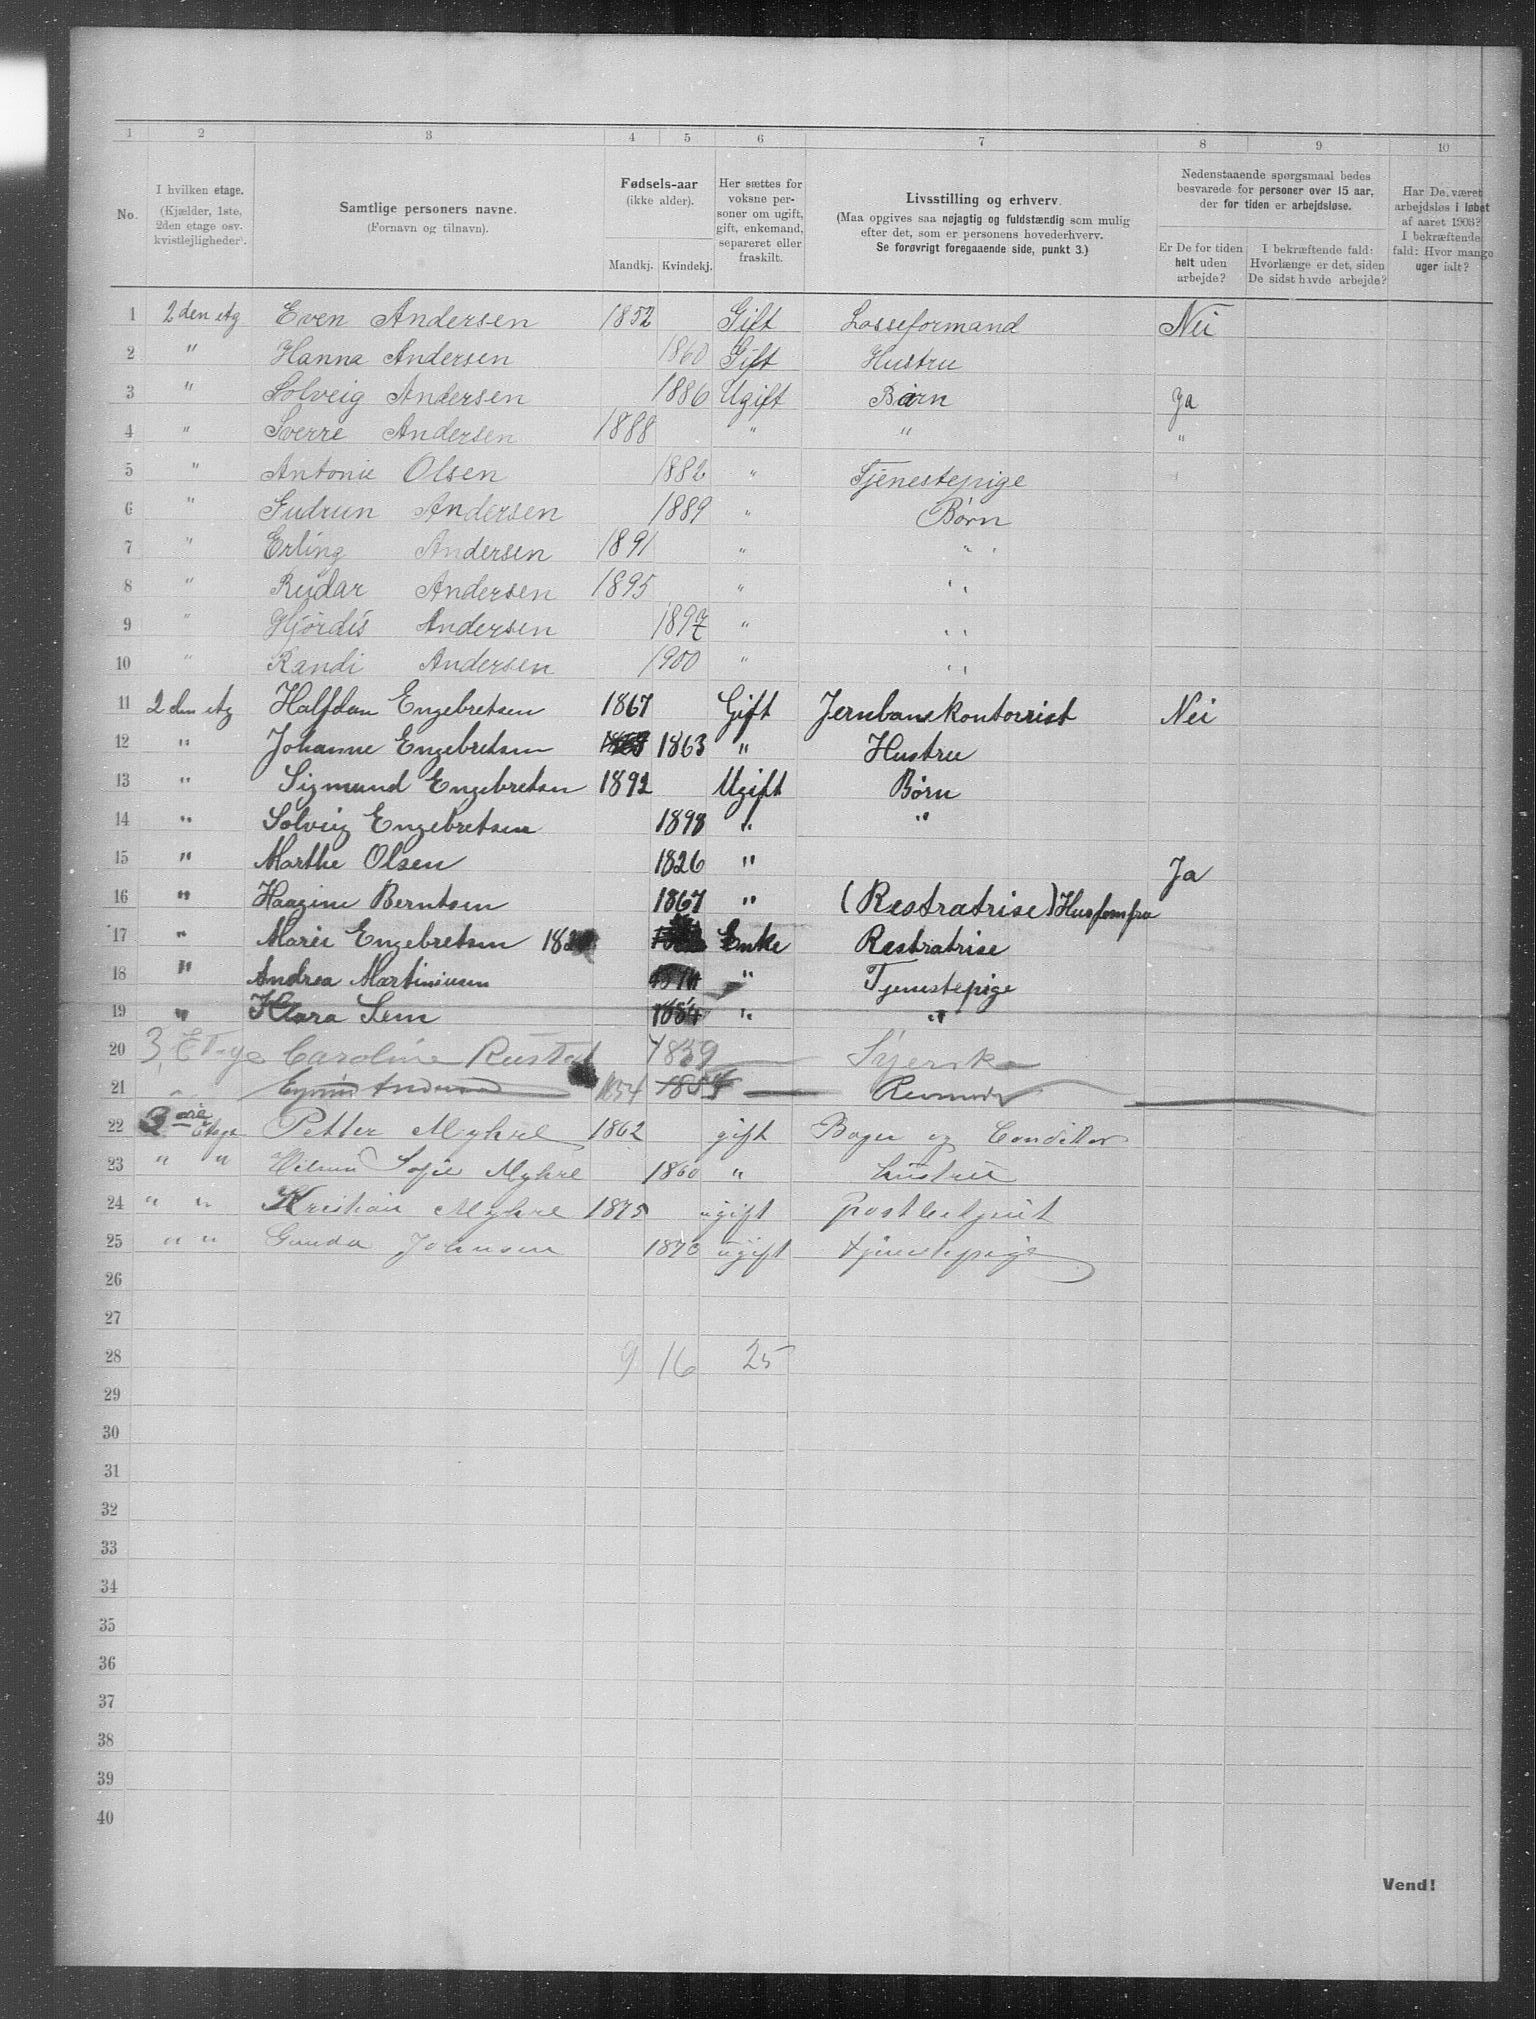 1 2 3 4 5 6 7 8 9 10
No.
I hvilken etage.
(Kjælder, 1ste,
2den etage osv.
kvistlejligheder).
Samtlige personers navne.
(Fornavn og tilnavn).
Fødsels-aar
(ikke alder).
Mandkj. Kvindekj.
Her sættes for
voksne per-
soner om ugift,
gift, enkemand,
separeret eller
fraskilt.
Livsstilling og erhverv.
(Maa opgives saa nøjagtig og fuldstændig som mulig
efter det, som er personens hovederhverv.
Se forøvrigt foregaaende side, punkt 3.)
Nedenstaaende spørgsmaal bedes
besvarede for personer over 15 aar,
der for tiden er arbejdsløse.
Er De for tiden
helt uden
arbejde?
I bekræftende fald:
Hvorlænge er det, siden
De sidst havde arbejde?
Har De været
arbejdsløs i løbet
af aaret 1903?
I bekræftende
fald: Hvor mange
uger ialt?
1 2den etg Even Andersen 1852 Gift Losseformand Nei
2 " Hanna Andersen 1860 Gift Hustru
3 " Solveig Andersen 1886 Ugift Barn Ja
4 " Sverre Andersen 1888 " " "
5 " Antonie Olsen 1882 " Tjenestepige
6 " Gudrun Andersen 1889 " Børn
7 " Erling Andersen 1891 " "
8 " Reidar Andersen 1895 " "
9 " Hjørdis Andersen 1897 " "
10 " Randi Andersen 1900 " "
11 2den etg Halfdan Engebretsen 1867 Gift Jernbanekontorrist Nei
12 " Johanne Engebretsen 1863 " Hustru
13 " Sigmund Engebretsen 1892 Ugift Børn
14 " Solveig Engebretsen 1898 " "
15 " Marthe Olsen 1826 " Ja
16 " Haagine Berntsen 1867 " (Restratrise) Husjomfru
17 " Marie Engebretsen Enke Restratrise
18 " Andrea Martinisen " Tjenestepige
19 " Klara Lem 1884 " "
20 3 Etage Caroline Rustad 1839 Syerske
21 " Andersen 1854
22 3die Etage Petter Myhre 1862 gift Bager og Conditor
23 " " Hilma Sofie Myhre 1860 " hustru
24 " " Kristian Myhre 1875 ugift postbetjent
25 " " Gunda Johnsen ugift tjenestepige
26
27
28 9 16 25
29
30
31
32
33
34
35
36
37
38
39
40
Vend!